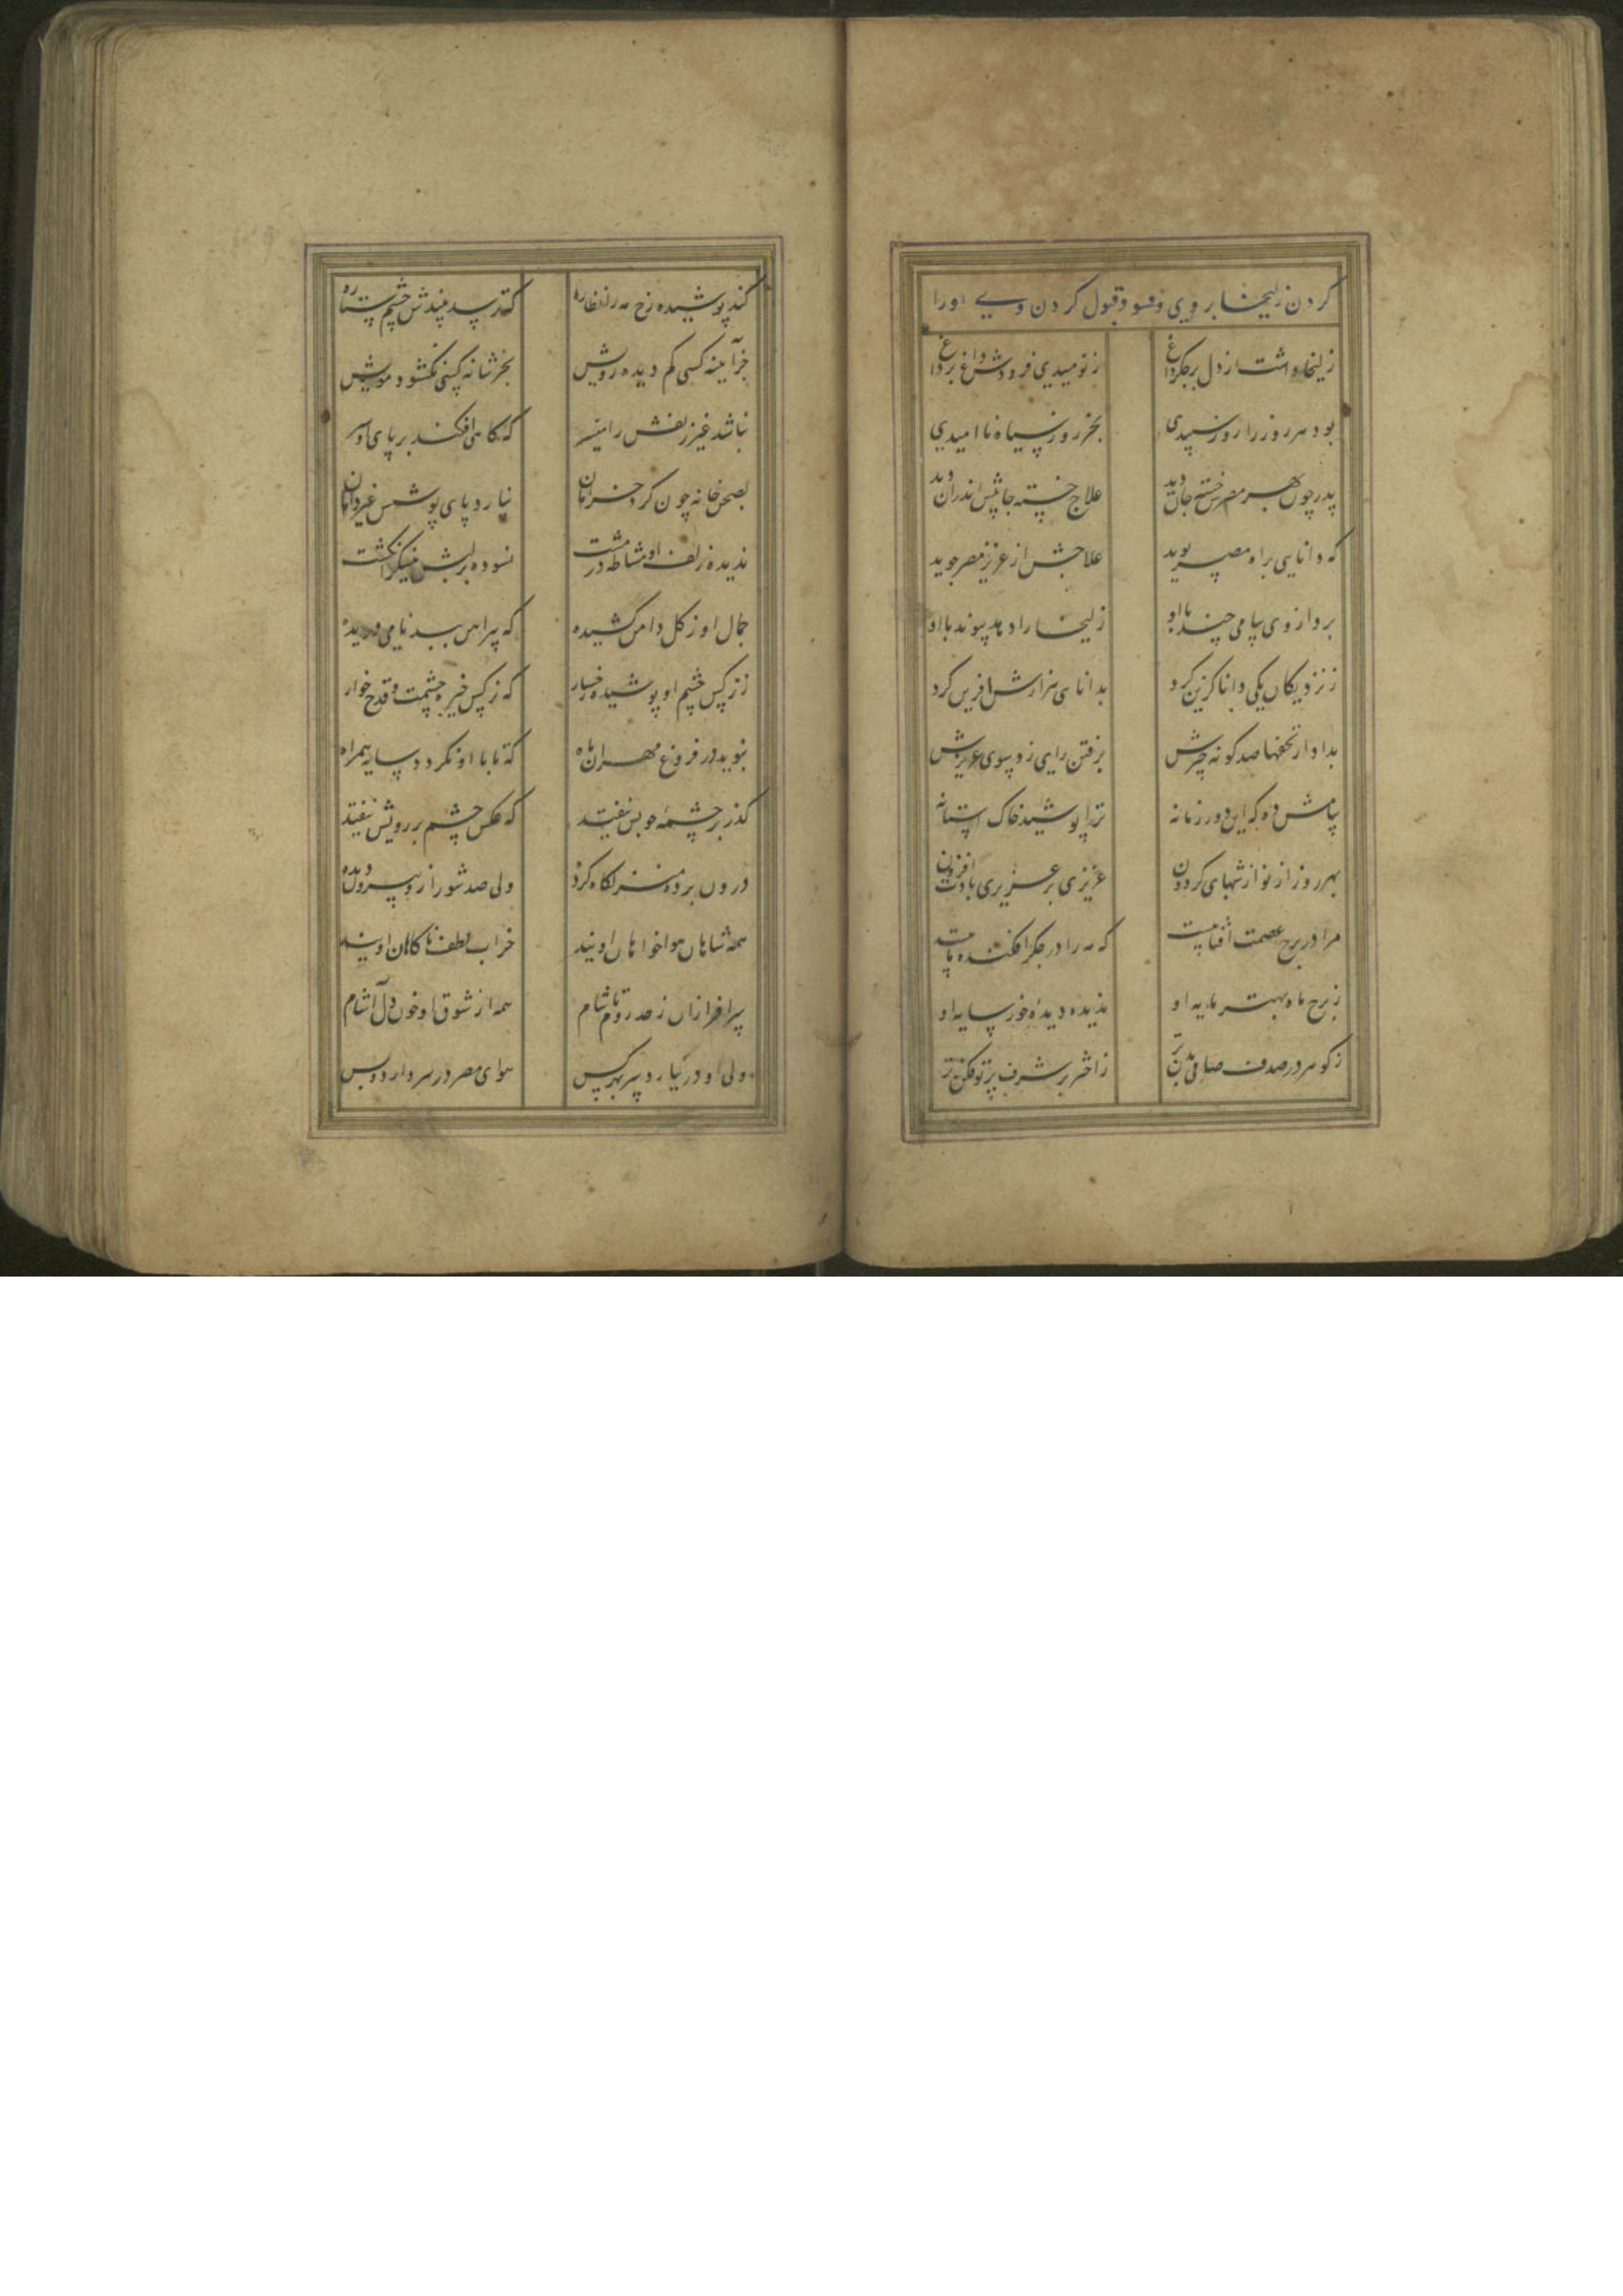 کردن زلیخا بر وی و قبول کردن وی او را
زلیخا داشت از دل بر جکر داغ ز نومیدی فزودش داغ بر داغ
بود هر روز را روز سپیدی بجز روز سیاه ناامیدی
پدر چون بهر مصرش خسته جان دید علاج خسته جانیش اندران دید
که دانایی براه مصر پوید علاجش از عزیز مصر جوید
برد از وی پیامی چند با او زلیخا را دهد پیوند با او
ز نزدیکان یکی دانا کزین کرد بدانای هزارش آفرین کرد
بداد از تحفها صد کونه چیزش برفتن رای زد سوی عزیزش
پیامش ده که ای دور زمانه ترا بوسید خاک آستانه
بهر روز از نوازشهای کردون عزیزی بر عزیزی بادت افزون
مرا در برج عصمت آفتابیست که مه را در جکر افکنده تابیست
ز برج ماه بهتر پایه او ندیده دیده خور سایه او
ز کوهر در صدف صافی بدن تر ز اختر بر شرف پرتو فکن تر
کند پوشیده رخ مه را نظاره که ترسد بیندش چشم ستاره
جز آیینه کسی کم دیده رویش بجز شانه کسی نکشود مویش
نباشد غیر زلفش را میسر که کاهی افکند بر پای او سر
بصحن خانه چون کردد خرامان نیارد پای بوسش غیر دامان
ندیده زلف او مشاطه در مشت نسوده بر لبش نیشکر انکشت
جمال او ز کل دامن کشیده که پیراهن ببدنامی دریده
ز نرکس چشم او پوشیده رخسار که نرکس خیره چشمست و قدح خوار
نپوید در فروغ مهر آن ماه که تا با او نکردد سایه همراه
کذر بر چشمه جویش نیفتد که عکس چشم بر رویش نیفتد
درون پرده منزلکاه کرده ولی صد شور ازو بیرون پرده
همه شاهان هواخواهان اویند خراب لطف ناکاهان اویند
سرافرازان ز حد روم تا شام همه از شوق او خون دل آشام
ولی او در نیارد سر بهر کس هوای مصر در سر دارد و بس